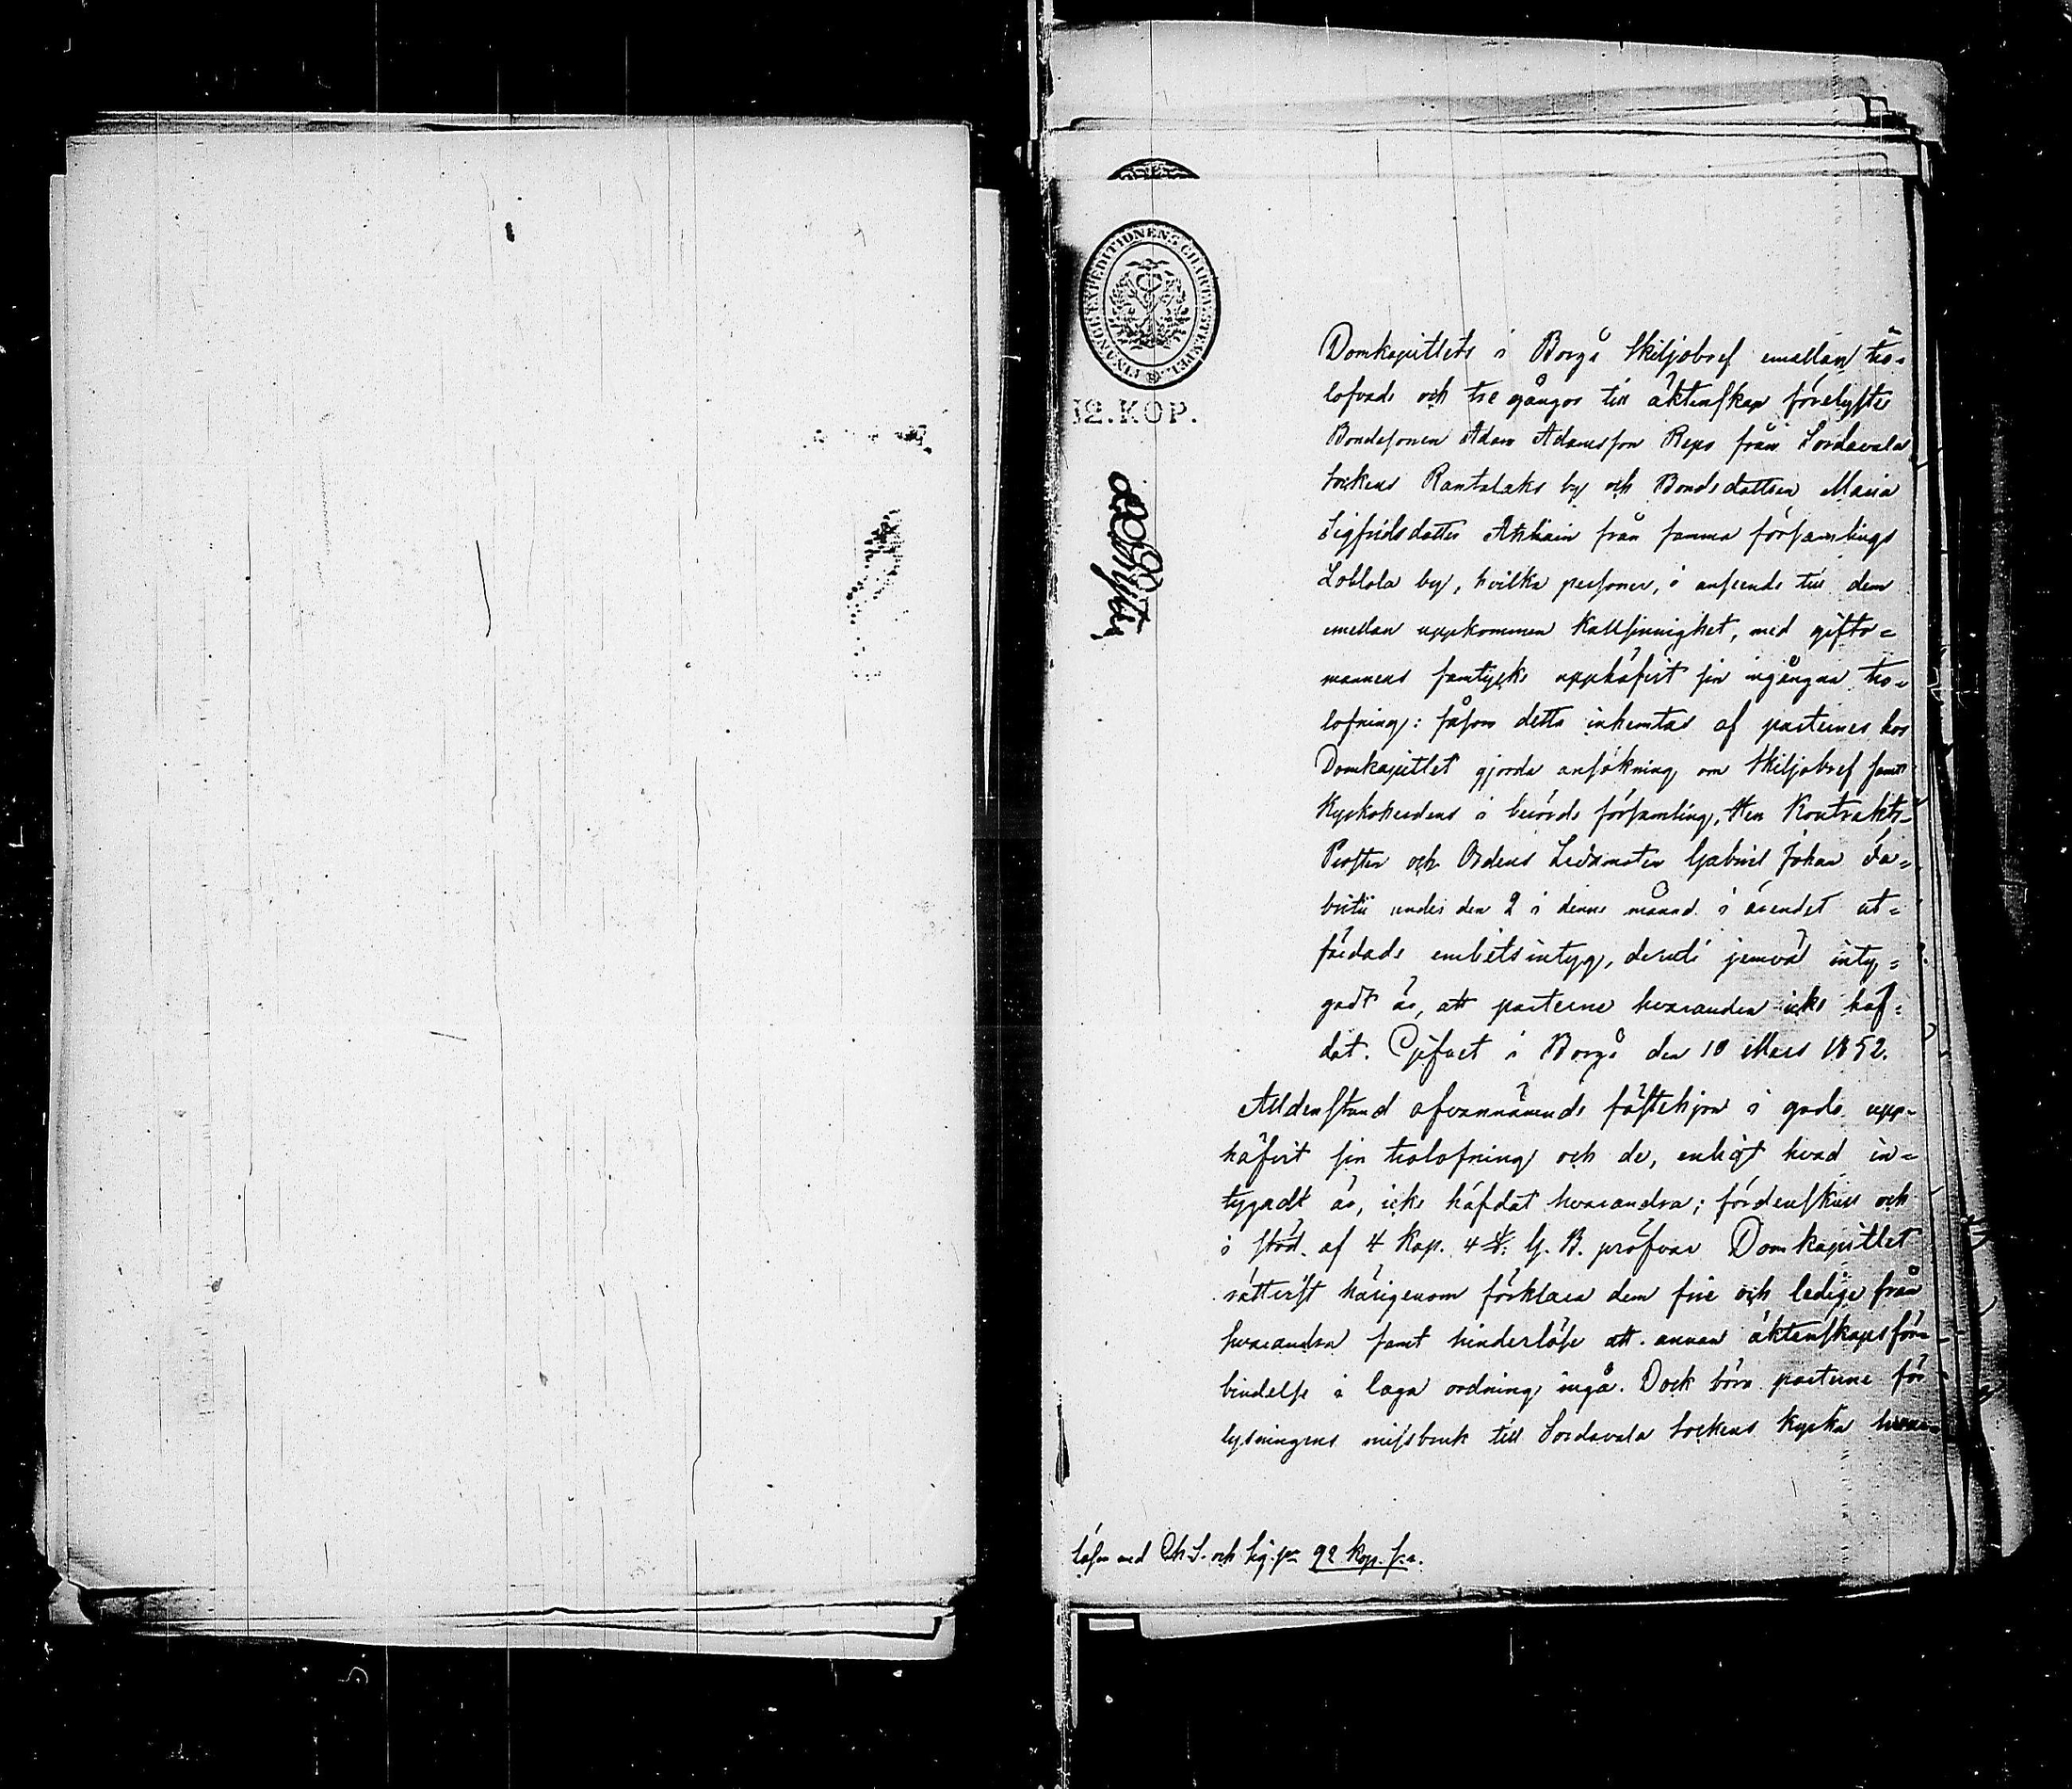 FINANCE EXPEDITIONENS CHARTÆ STEMPEL
12.KOP.
Domkapitlets i Borgå Skiljobref emellan tro-
lofvade och tre gångor till äktenskap förelyste
Bondesonen Adam Adamsson Repo från Sordavala
sockens Rantalaks by och Bondedottren Maria
Sigfridsdotter från samma församlings
by, hvilka personer, i anseende till dem
emellan uppkommen kallsinnighet, med gifto-
mannens samtycke upphäfvit sin ingångna tro-
lofning: såsom detta inhemtas af parternes hos
Domkapitlet gjorda ansökning om Skiljobref samt
Kyrkoherdens i berörde församling, Herr Kontrakts-
Prosten och Ordens Ledamoten Gabriel Johan Fa-
britii under den 2 i denne månad i ärendet ut-
färdade embetsintyg, deruti jemväl inty-
gadt är, att parterne hvarandra icke häf-
dat. Gifvet i Borgå den 10 Mars 1852.
Alldenstund ofvannämnde fästehjon i godo upp-
häfvit sin trolofning och de, enligt hvad in-
tygadt är, icke häfdat hvarandra; fördenskull och
i stöd af 4 Kap. 4 §: G. B. pröfvar Domkapitlet
rättvist härigenom förklara dem frie och ledige från
hvarandra samt hinderlöse att annan äktenskapsför-
bindelse i laga ordning ingå. Dock böra parterne för
lysningens missbruk till Sordavala sockens kyrka hvar-
Lösen med Ch. S. och Sig. 92 kop. s:r.